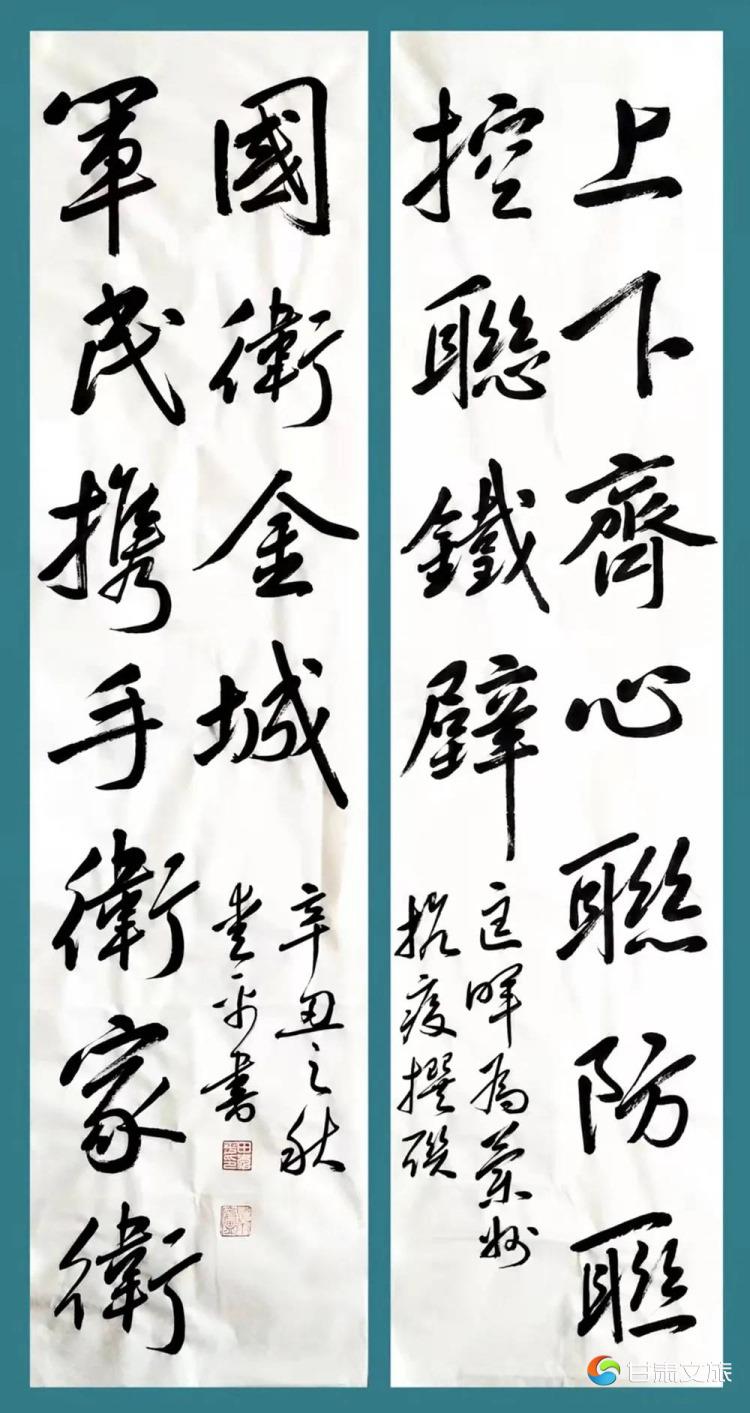 上下齊心聯防聯
控聯鐵壁
匡暉為蘭州
抗疫撰聯
軍民攜手衛家衛
國衛金城
辛丑之秋
書
甘肃文旅